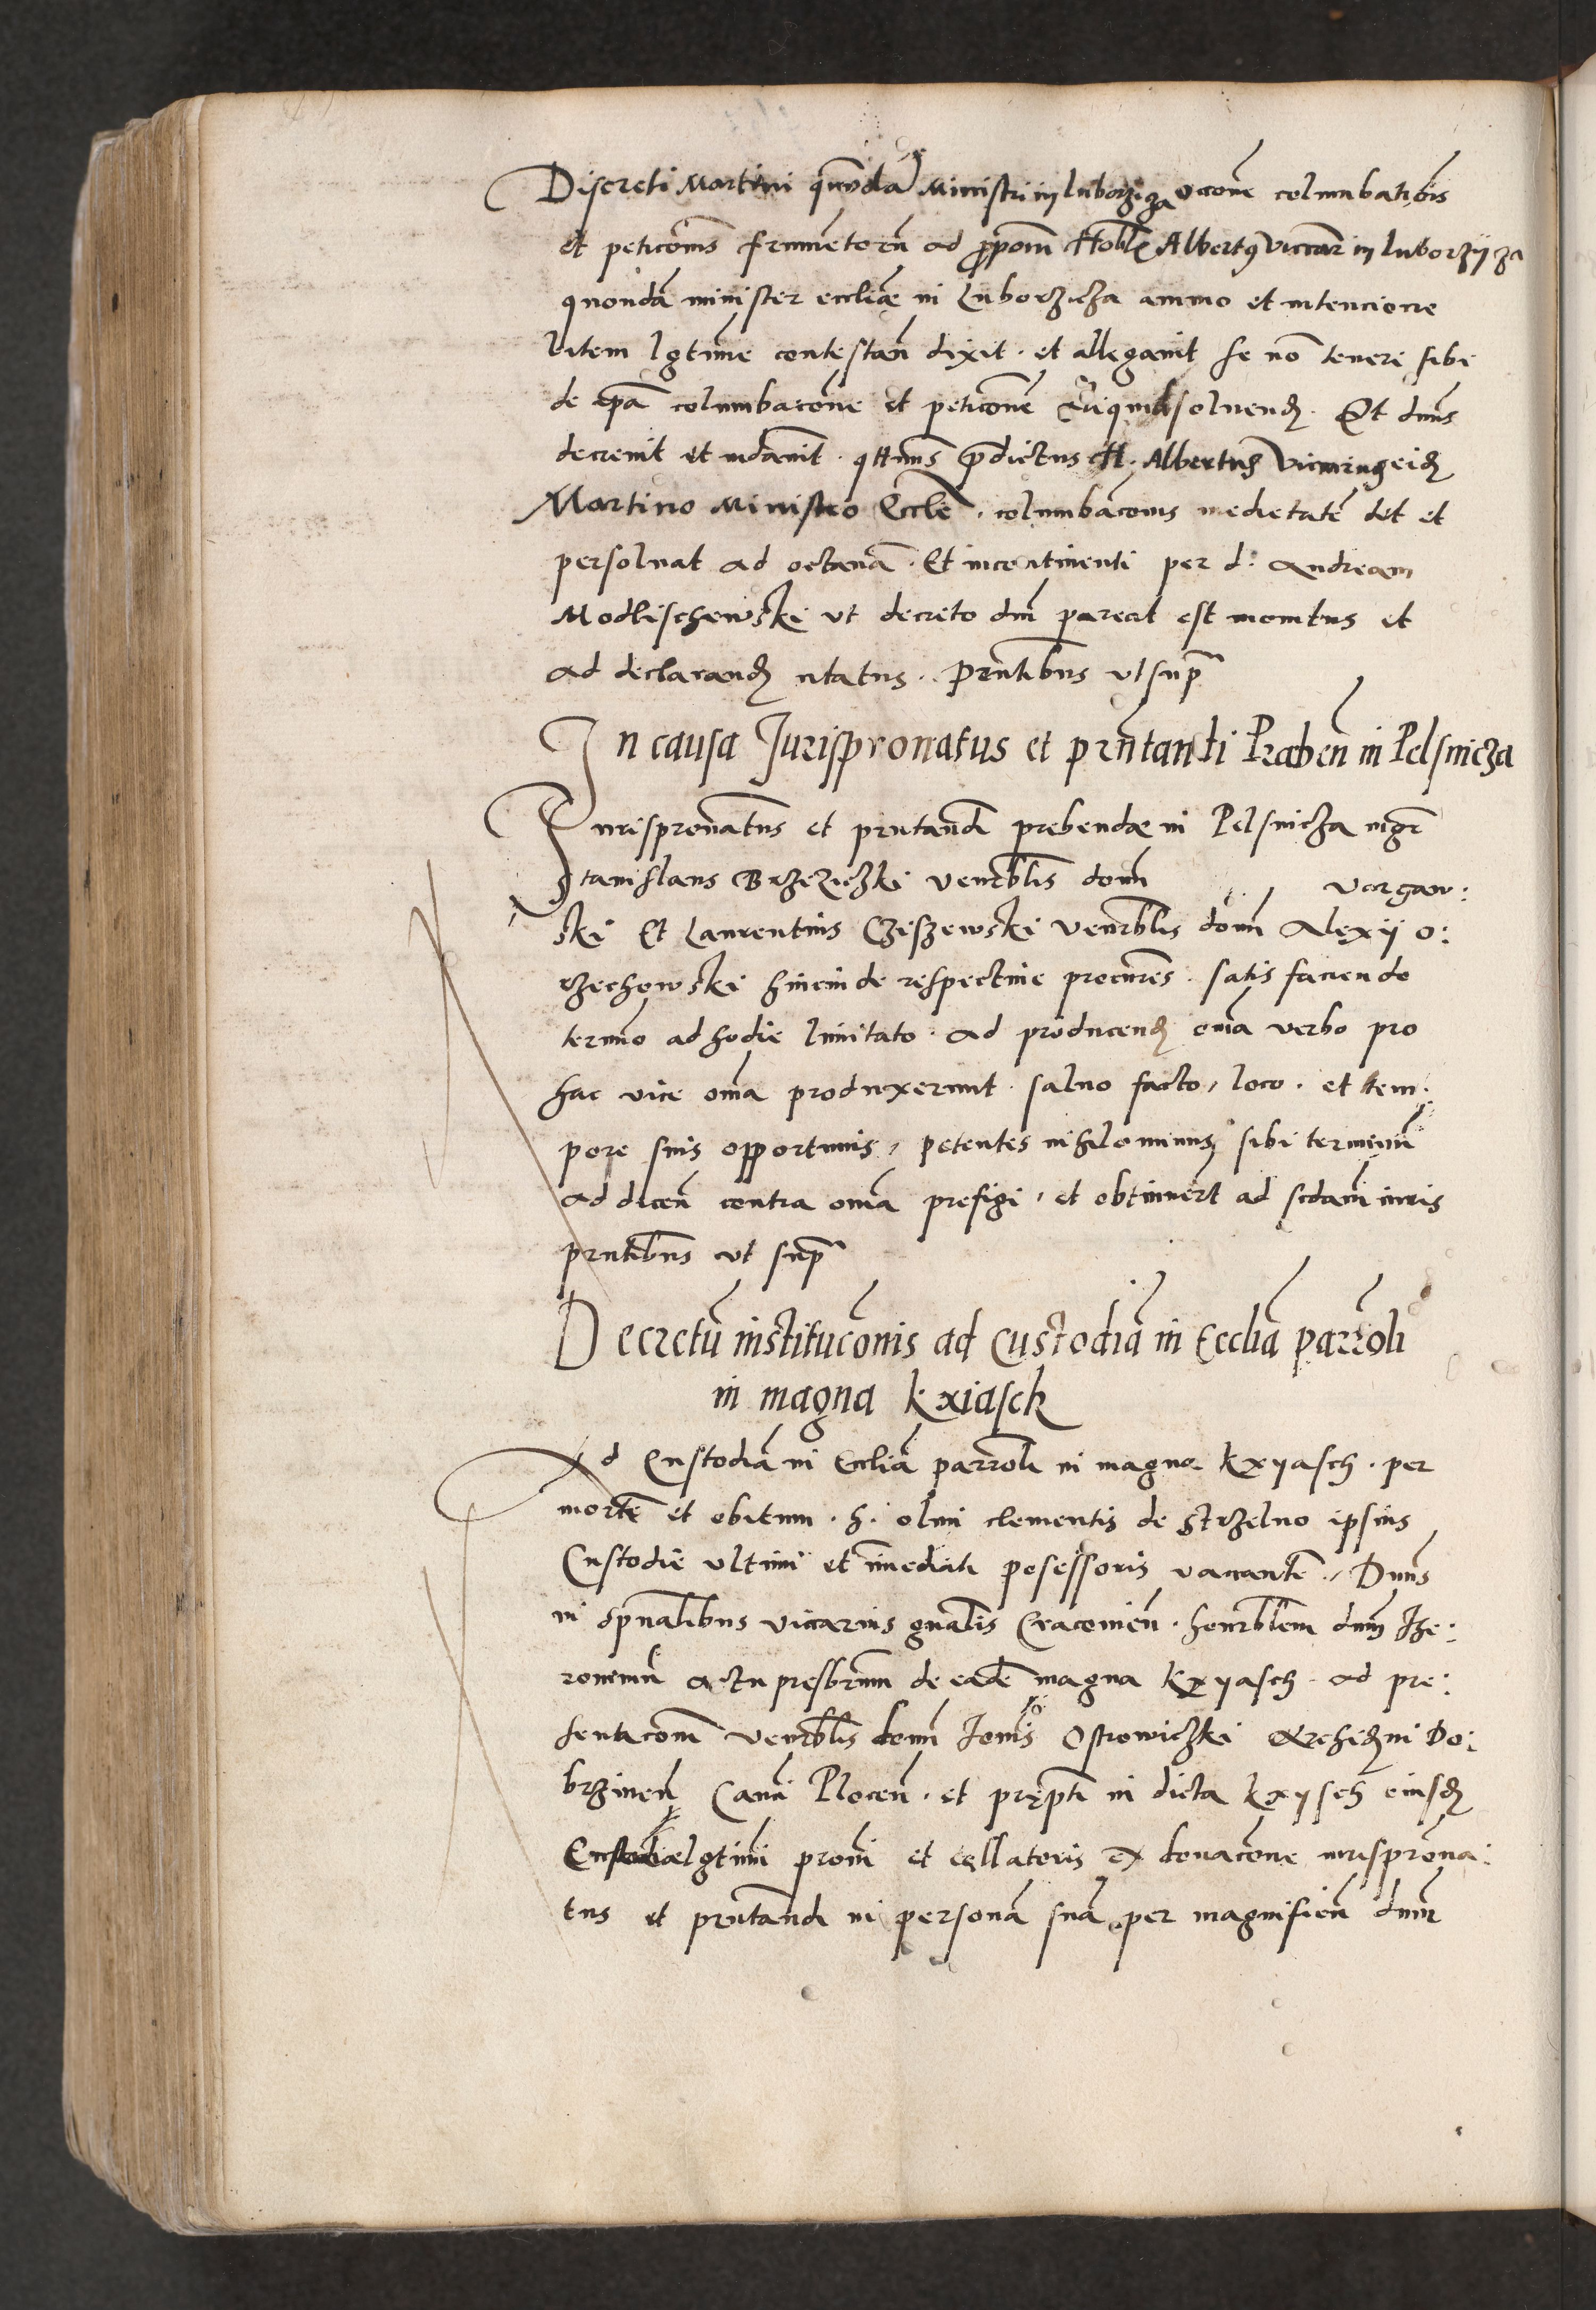 Discreti Martini quōda Ministri in luborziza occōne columbatiōis
et peticōnis frumētorū ad p̄pōnm Hoble Albertꝰ Viccar in luborzyza
quondā minister eccliæ in Luborzicza animo et intencione
litem lgtīme contestan̄ dixit · et allegavit se nō tenere sibi
de ip̄a columbacōne et peticōne aliquid solvend̄ · Et dn̄s
decrevit et mdavit · qtīnus p̄dictus H · Albertus Vicarius eid̄
Martino Ministro Eccle · columbacōnis medietatē det et
persolvat ad octavā · Et incontinenti per d: Andream
Modlischewski ut decreto dn̄i pareat est monitus et
ad declarand̄ citatus · Prn̄tibus ut sup̄
In causa Jurispronatus et prn̄tandi Præben̄ in Pelsnicza
Jurispronātus et prntandi prebendæ in Pelsnicza mgr̄
Stanislaus Brzeziczki venrblis domī Vargaw:
ski Et Laurentius Cziszewski venrblis domī Alexij O:
rzechowski hincinde respective procures · satisfaciendo
termīo ad hodie limitato · ad producend̄ om̄ia verbo pro
hac vice om̄a produxerunt · salvo facto, loco · et tem:
pore suis opportunis, petentes nihilominus sibi terminū
ad dicen̄ contra om̄a prefigi, et obtinuert ad scdam̄ iuris
prntibus ut sup̄
Decretū institucōnis ad Custodiā in Eccliā parrōli
in magna kxiasch
Ad Custodiā in Eccliā parrōli in magna kxyasch · per
mortē et obitum · h · olim clementis de Strzelno ipsius
Custodie ultimi et īmediati posessoris vacantē, Dnn̄s
in spūalibus vicarius gnālis Cracovien̄ · honrblem dnm̄ Ihe:
ronimū actu presbrūm de eadē magna kxyasch · ad pre:
sentacōnem venrblis domī Ioan̄is Ostrowiczki Archid̄ni Do:
brzinen̄ Canci Plocen̄ · et pręptī in dicta kxysch eiusd̄
Custodiæ lgtimi pronī et collatoris ex donacōne iurisprōna:
tus et prntandi in personā suā per magnificū dnm̄